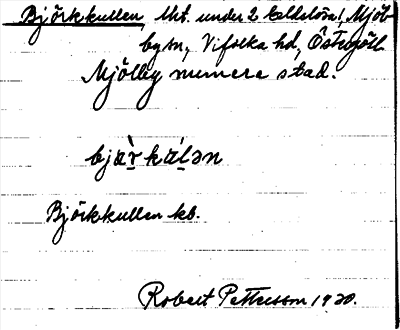 Björkkullen lht. under 2 Kaldslösa, Mjöl-
by sn, Vifolka hd, Östergötl.
Mjölby numera stad.
Björkkullen kb.
Robert Pettersson 1920.